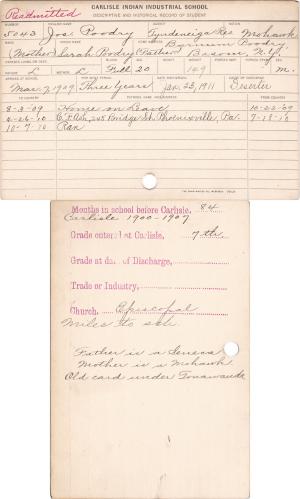 Readmitted
CARLISLE INDIAN INDUSTRIAL SCHOOL
DESCRIPTIVE AND HISTORICAL RECORD OF STUDENT
NUMBER ENGLISH NAME AGENCY NATION
5043 Jos. Poodry Tyndenaiga Res Mohawk
Barnum Poodry
(Mother) Sarah Podry (Father) Basom N.Y.
L L Full 20 149 M.
Mar. 7, 1909 Three Years Jan. 23, 1911 Deserter
TO COUNTRY PATRONS NAME AND ADDRESS FROM COUNTRY
8-3-09 Home on Leave 10-22-09
4-26-10 Bridge St. Phoenixville, Pa. 9-13-10
10-7-10 Ran
Months in school before Carlisle, 84
Carlisle 1900-1907
Grade entered at Carlisle, 7th
Grade at date of Discharge,
Trade or Industry,
Church. Episcopal
Miles to
Father is a Seneca
Mother is a Mohawk
Old card under Tonawanda